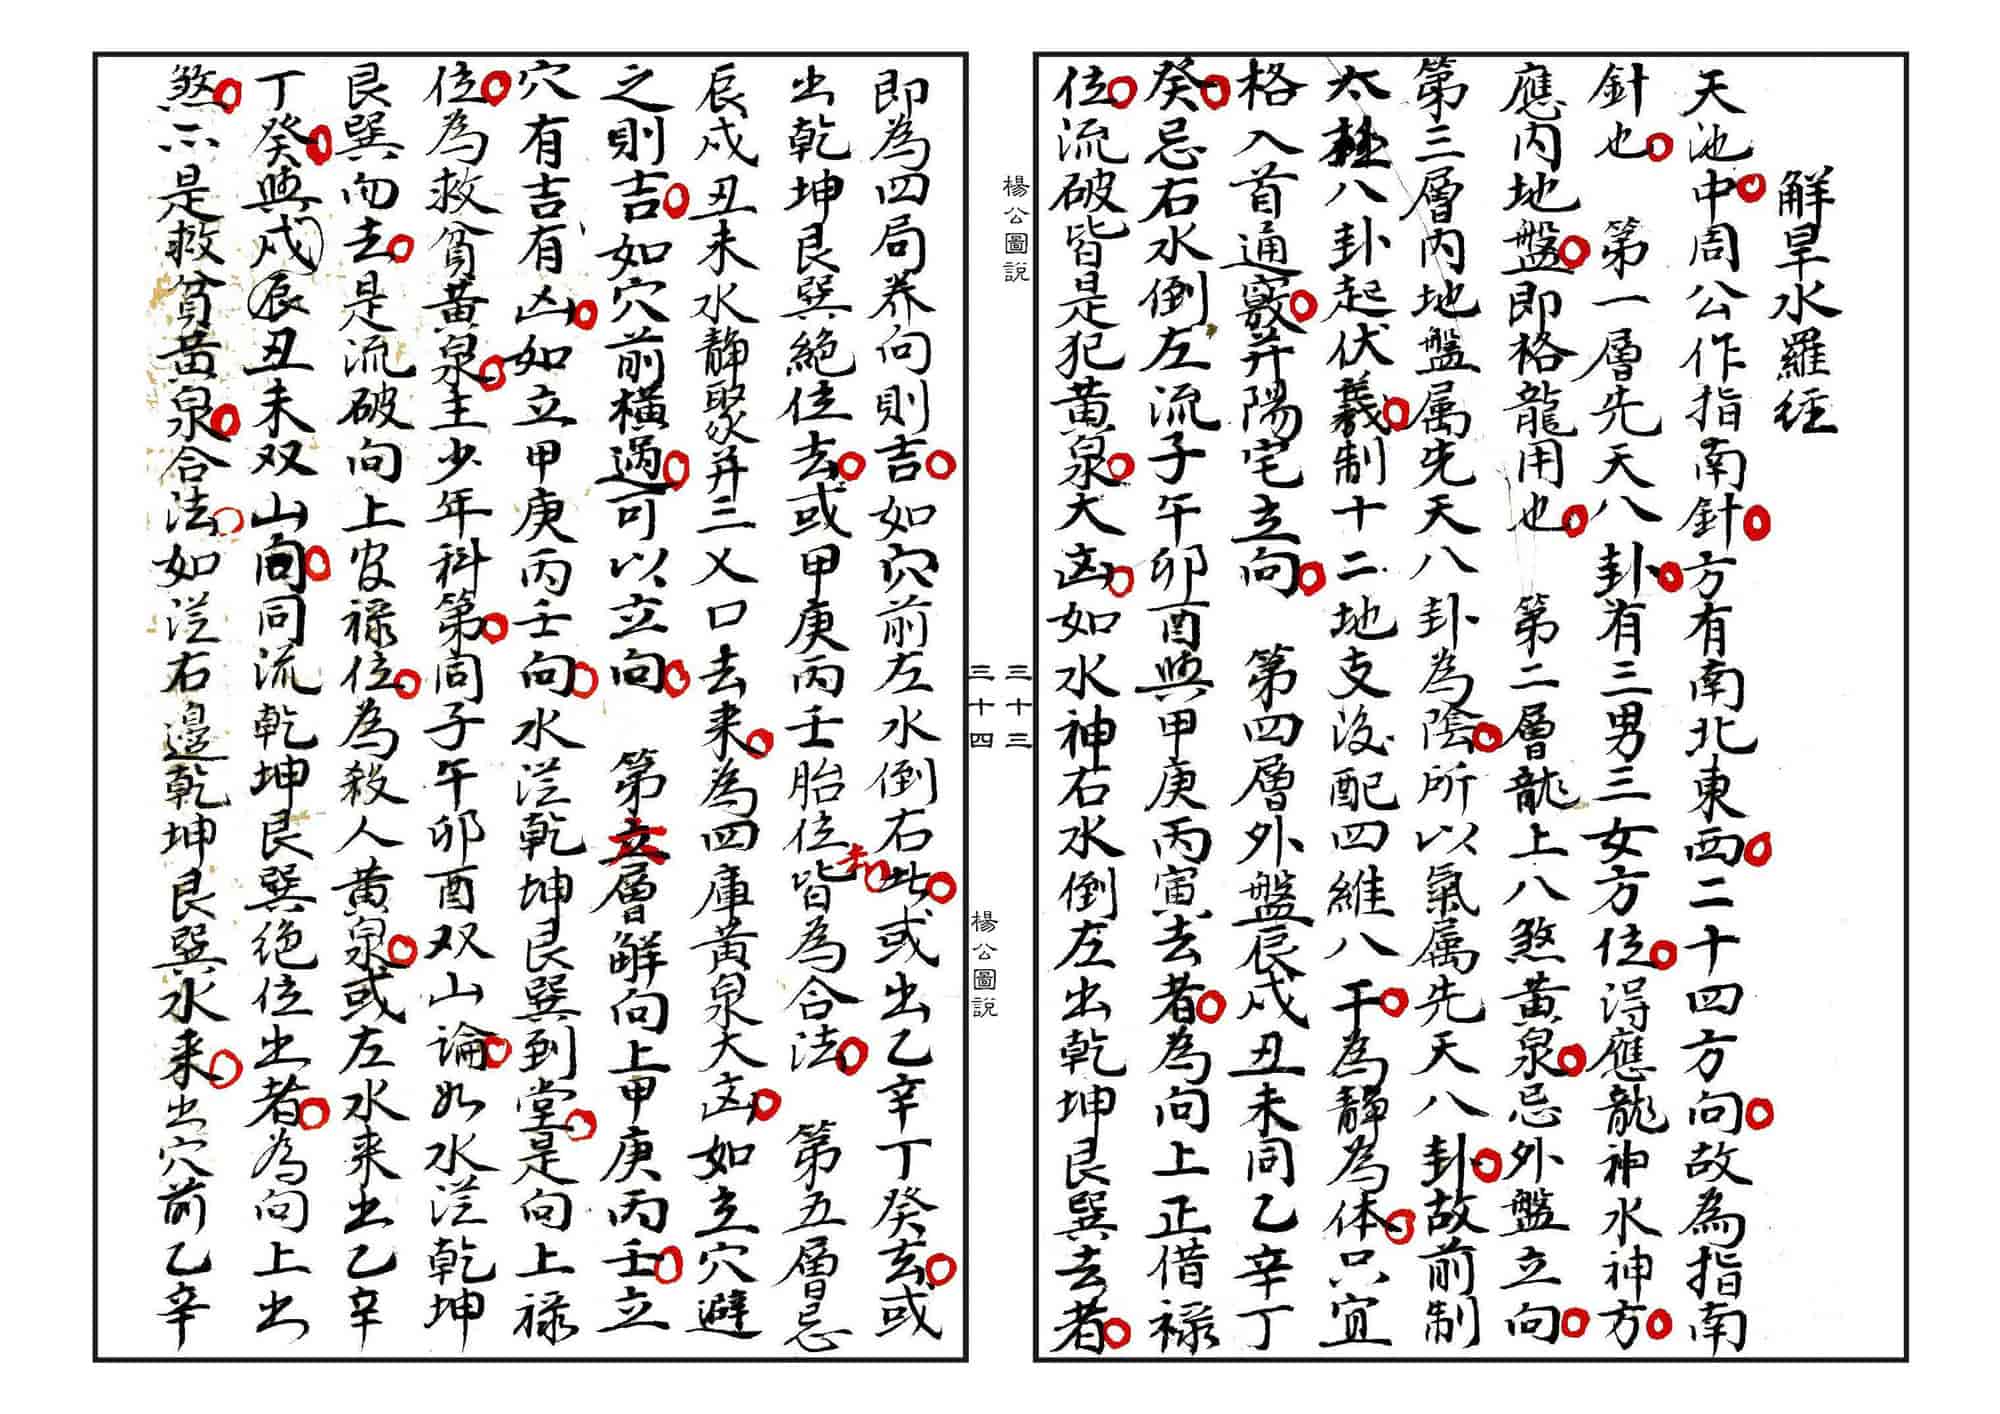 解旱水羅経
天池中周公作指南針方有南北東西二十四方向故為指南
針也　第一層先天八卦有三男三女方位得應龍神水神方
應内地盤即格龍用也　第二層龍上八煞黄泉忌外盤立向
第三層内地盤属先天八卦為陰所以氣属先天八卦故前制
太極八卦起伏羲制十二地支後配四維八干為静為体只宜
格入首通竅并陽宅立向　第四層外盤辰戍丑未同乙辛丁
癸忌右水倒左流子午卯酉與甲庚丙寅去者為向上正借禄
位流破皆是犯黄泉大凶如水神右水倒左出乾坤艮巽去者
楊公圖說
三十三
三十四
楊公圖說
即為四局养向則吉如穴前左水倒右此或出乙辛丁癸去或
出乾坤艮巽絕位去或甲庚丙壬胎位皆為合法　第五層忌
却
辰戍丑未水靜聚并三义口去来為四庫黃泉大凶如立穴避
之則吉如穴前橫過可以立向　第六層解向上甲庚丙壬立
穴有吉有凶如立甲庚丙壬向水從乾坤艮巽到堂是向上禄
位為救貧黃泉主少年科第同子午卯酉双山論如水從乾坤
艮巽而去是流破向上官禄位為殺人黄泉或左水来出乙辛
丁癸與戍辰丑未双山向同流乾坤艮巽绝位出者為向上出
煞亦是救貧黄泉合法如從右邊乾坤艮巽水来出穴前乙辛